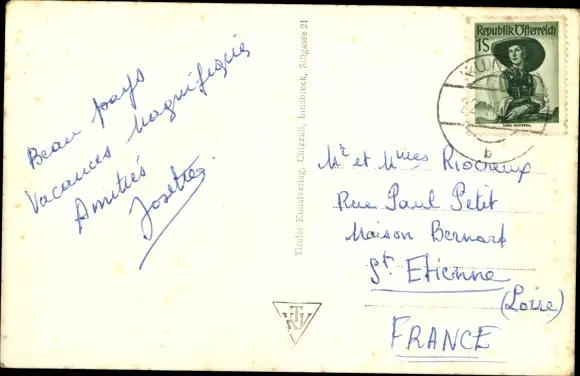 Beau pays
Vacances Magnifiques
Amitiés
Josette
Tiroler Kunstverlag, Chizzali, Innsbruck, Sillgasse 21
Republik Österreich
1S
b
Mr et Mmes Riocreux
Rue Paul Petit
Maison Bernard
St. Etienne
(Loire)
FRANCE